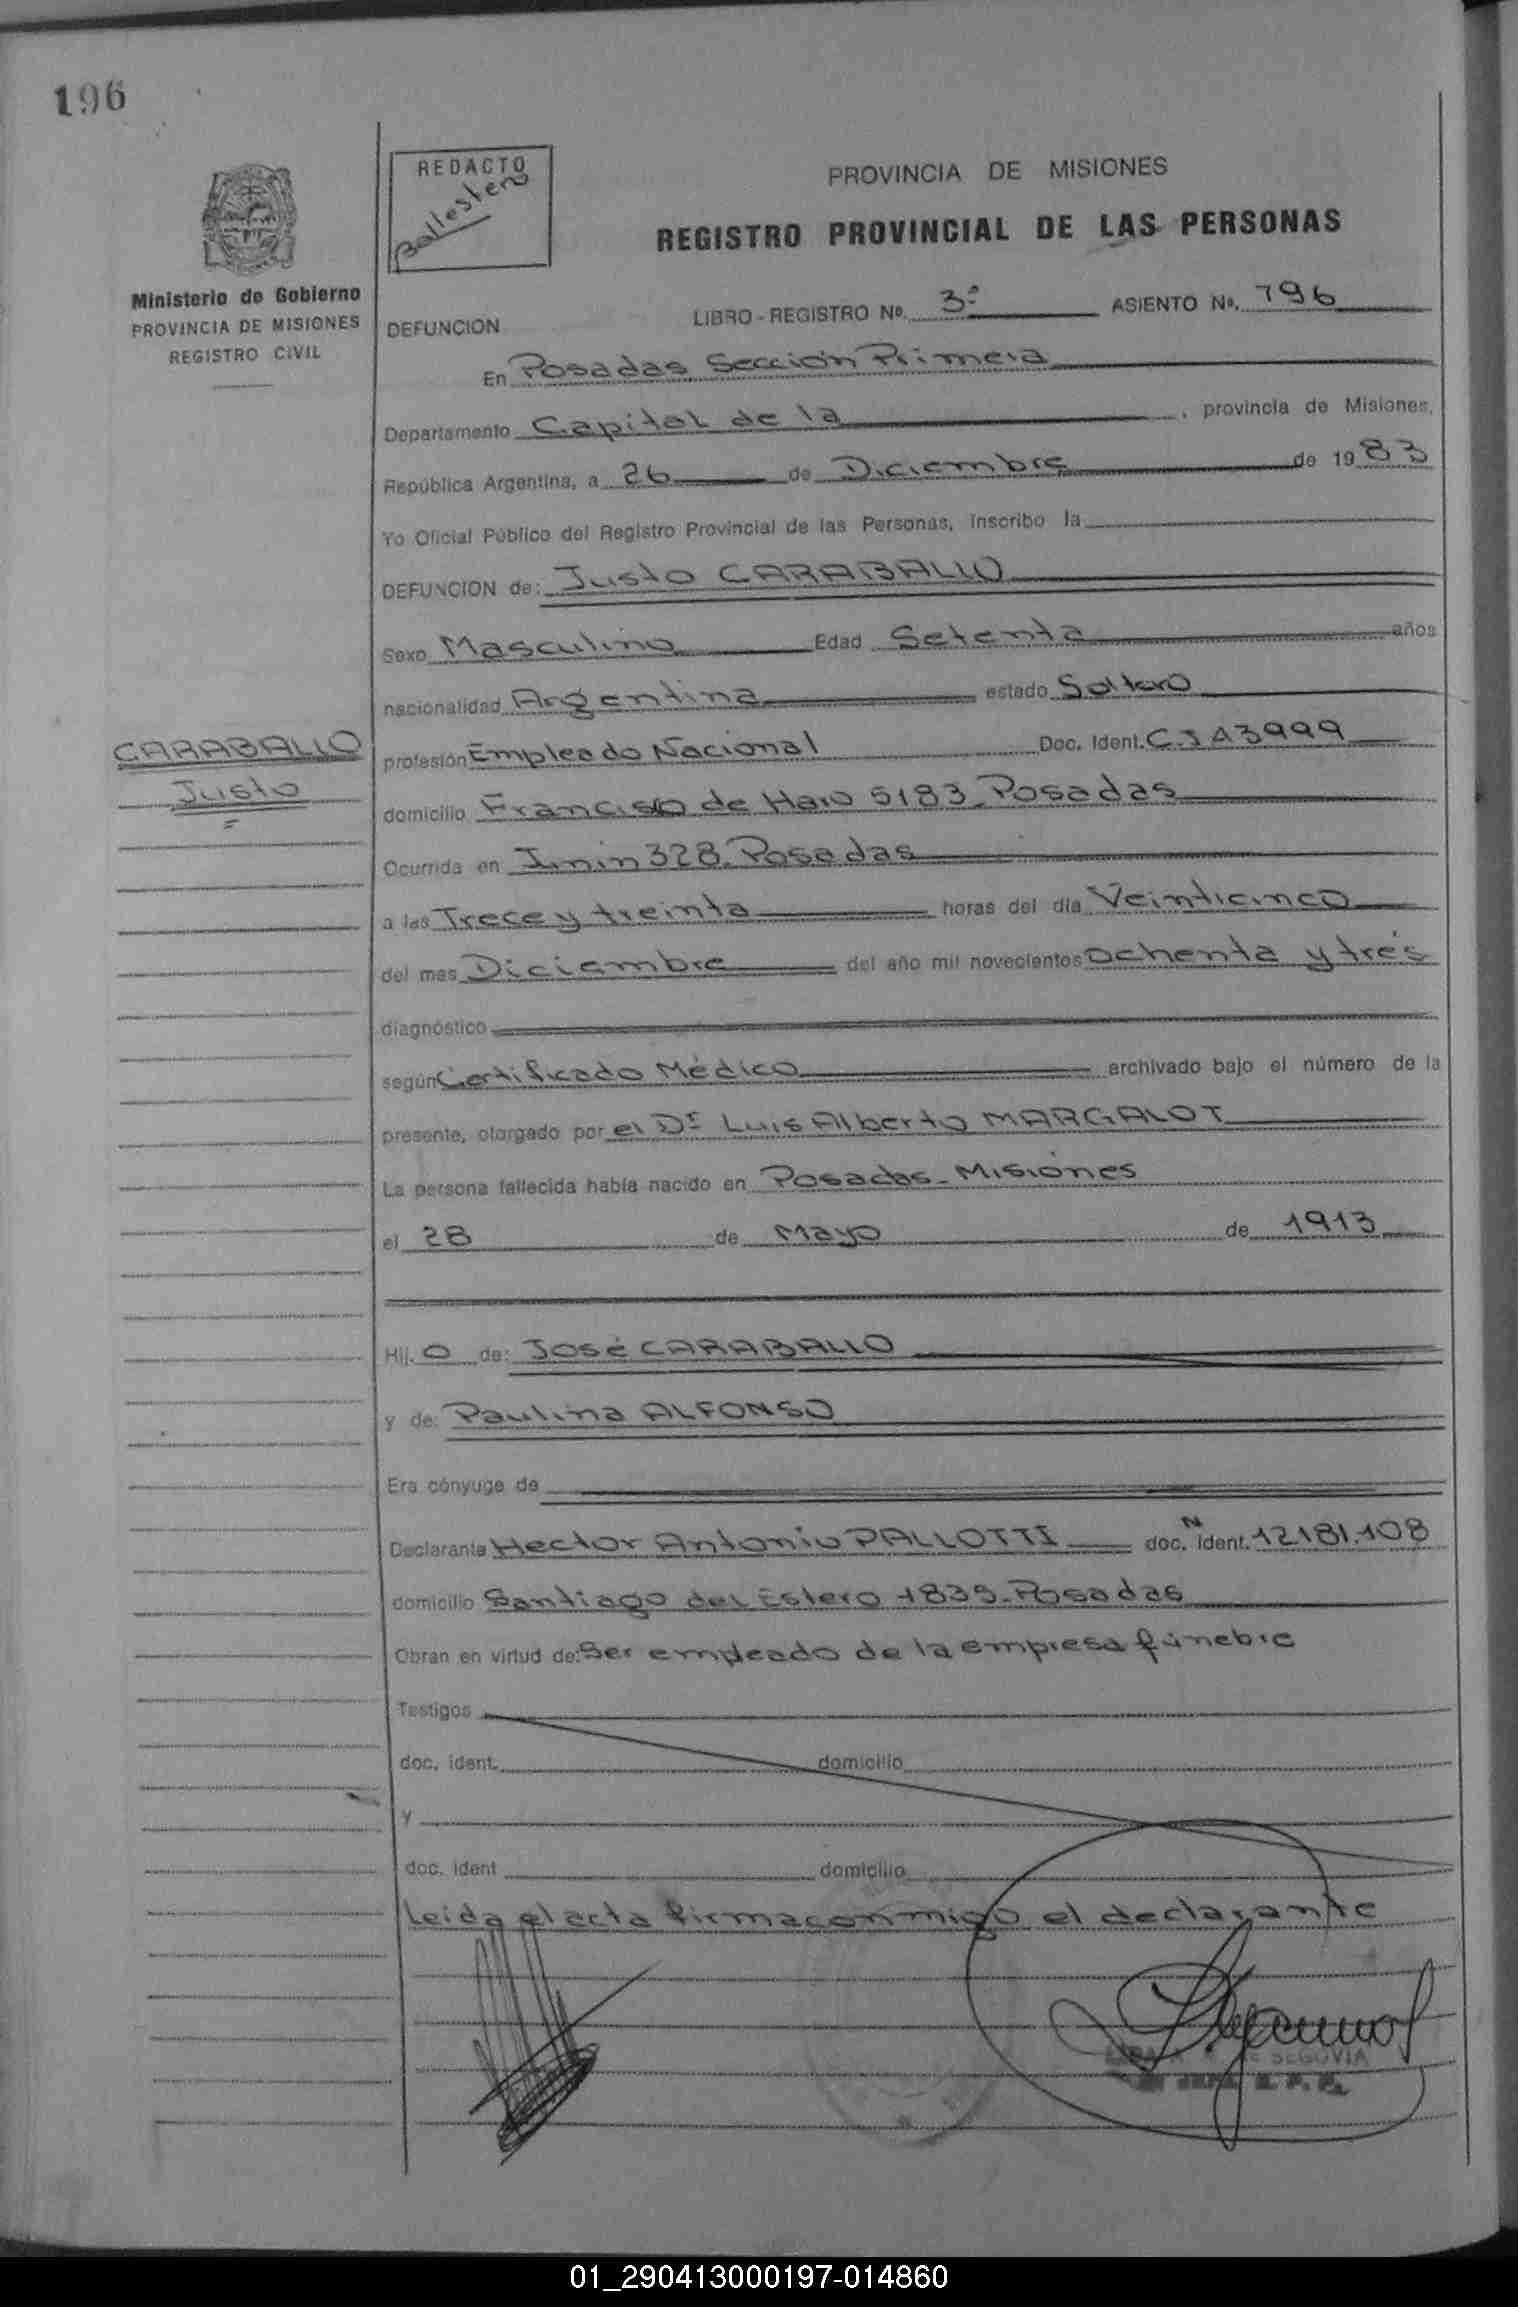 196
REDACTO
Ballestero
PROVINCIA DE MISIONES
REGISTRO PROVINCIAL DE LAS PERSONAS
Ministerio de Gobierno
PROVINCIA DE MISIONES
REGISTRO CIVIL
DEFUNCION LIBRO - REGISTRO Nº. 3º ASIENTO Nº. 796
En Posadas Sección Primera
Departamento Capital de la , provincia de Misiones,
República Argentina, a 26 de Diciembre de 1983
Yo Oficial Público del Registro Provincial de las Personas, inscribo la
DEFUNCION de: Justo CARABALLO
Sexo Masculino Edad Setenta años
nacionalidad Argentina estado Soltero
CARABALLO
Justo
profesión Empleado Nacional Doc. Ident. C.I A3999
domicilio Francisco de Haro 5183 - Posadas
Ocurrida en Junin 328 - Posadas
a las Trece y treinta horas del día Veinticinco
del mes Diciembre del año mil novecientos ochenta y tres
diagnóstico
según Certificado Médico archivado bajo el número de la
presente, otorgado por el Dr Luis Alberto MARGALOT
La persona fallecida había nacido en Posadas - Misiones
el 28 de Mayo de 1913
Hij. o de: José CARABALLO
y de: Paulina ALFONSO
Era cónyuge de
Declarante Hector Antonio PALLOTTI doc. N ident. 12181.108
domicilio Santiago del Estero 1835 - Posadas
Obran en virtud de: Ser empleado de la empresa fúnebre
Testigos
doc. ident. domicilio
y
doc. ident domicilio
Leida el acta firma conmigo el declarante
DE SEGOVIA
01_290413000197-014860